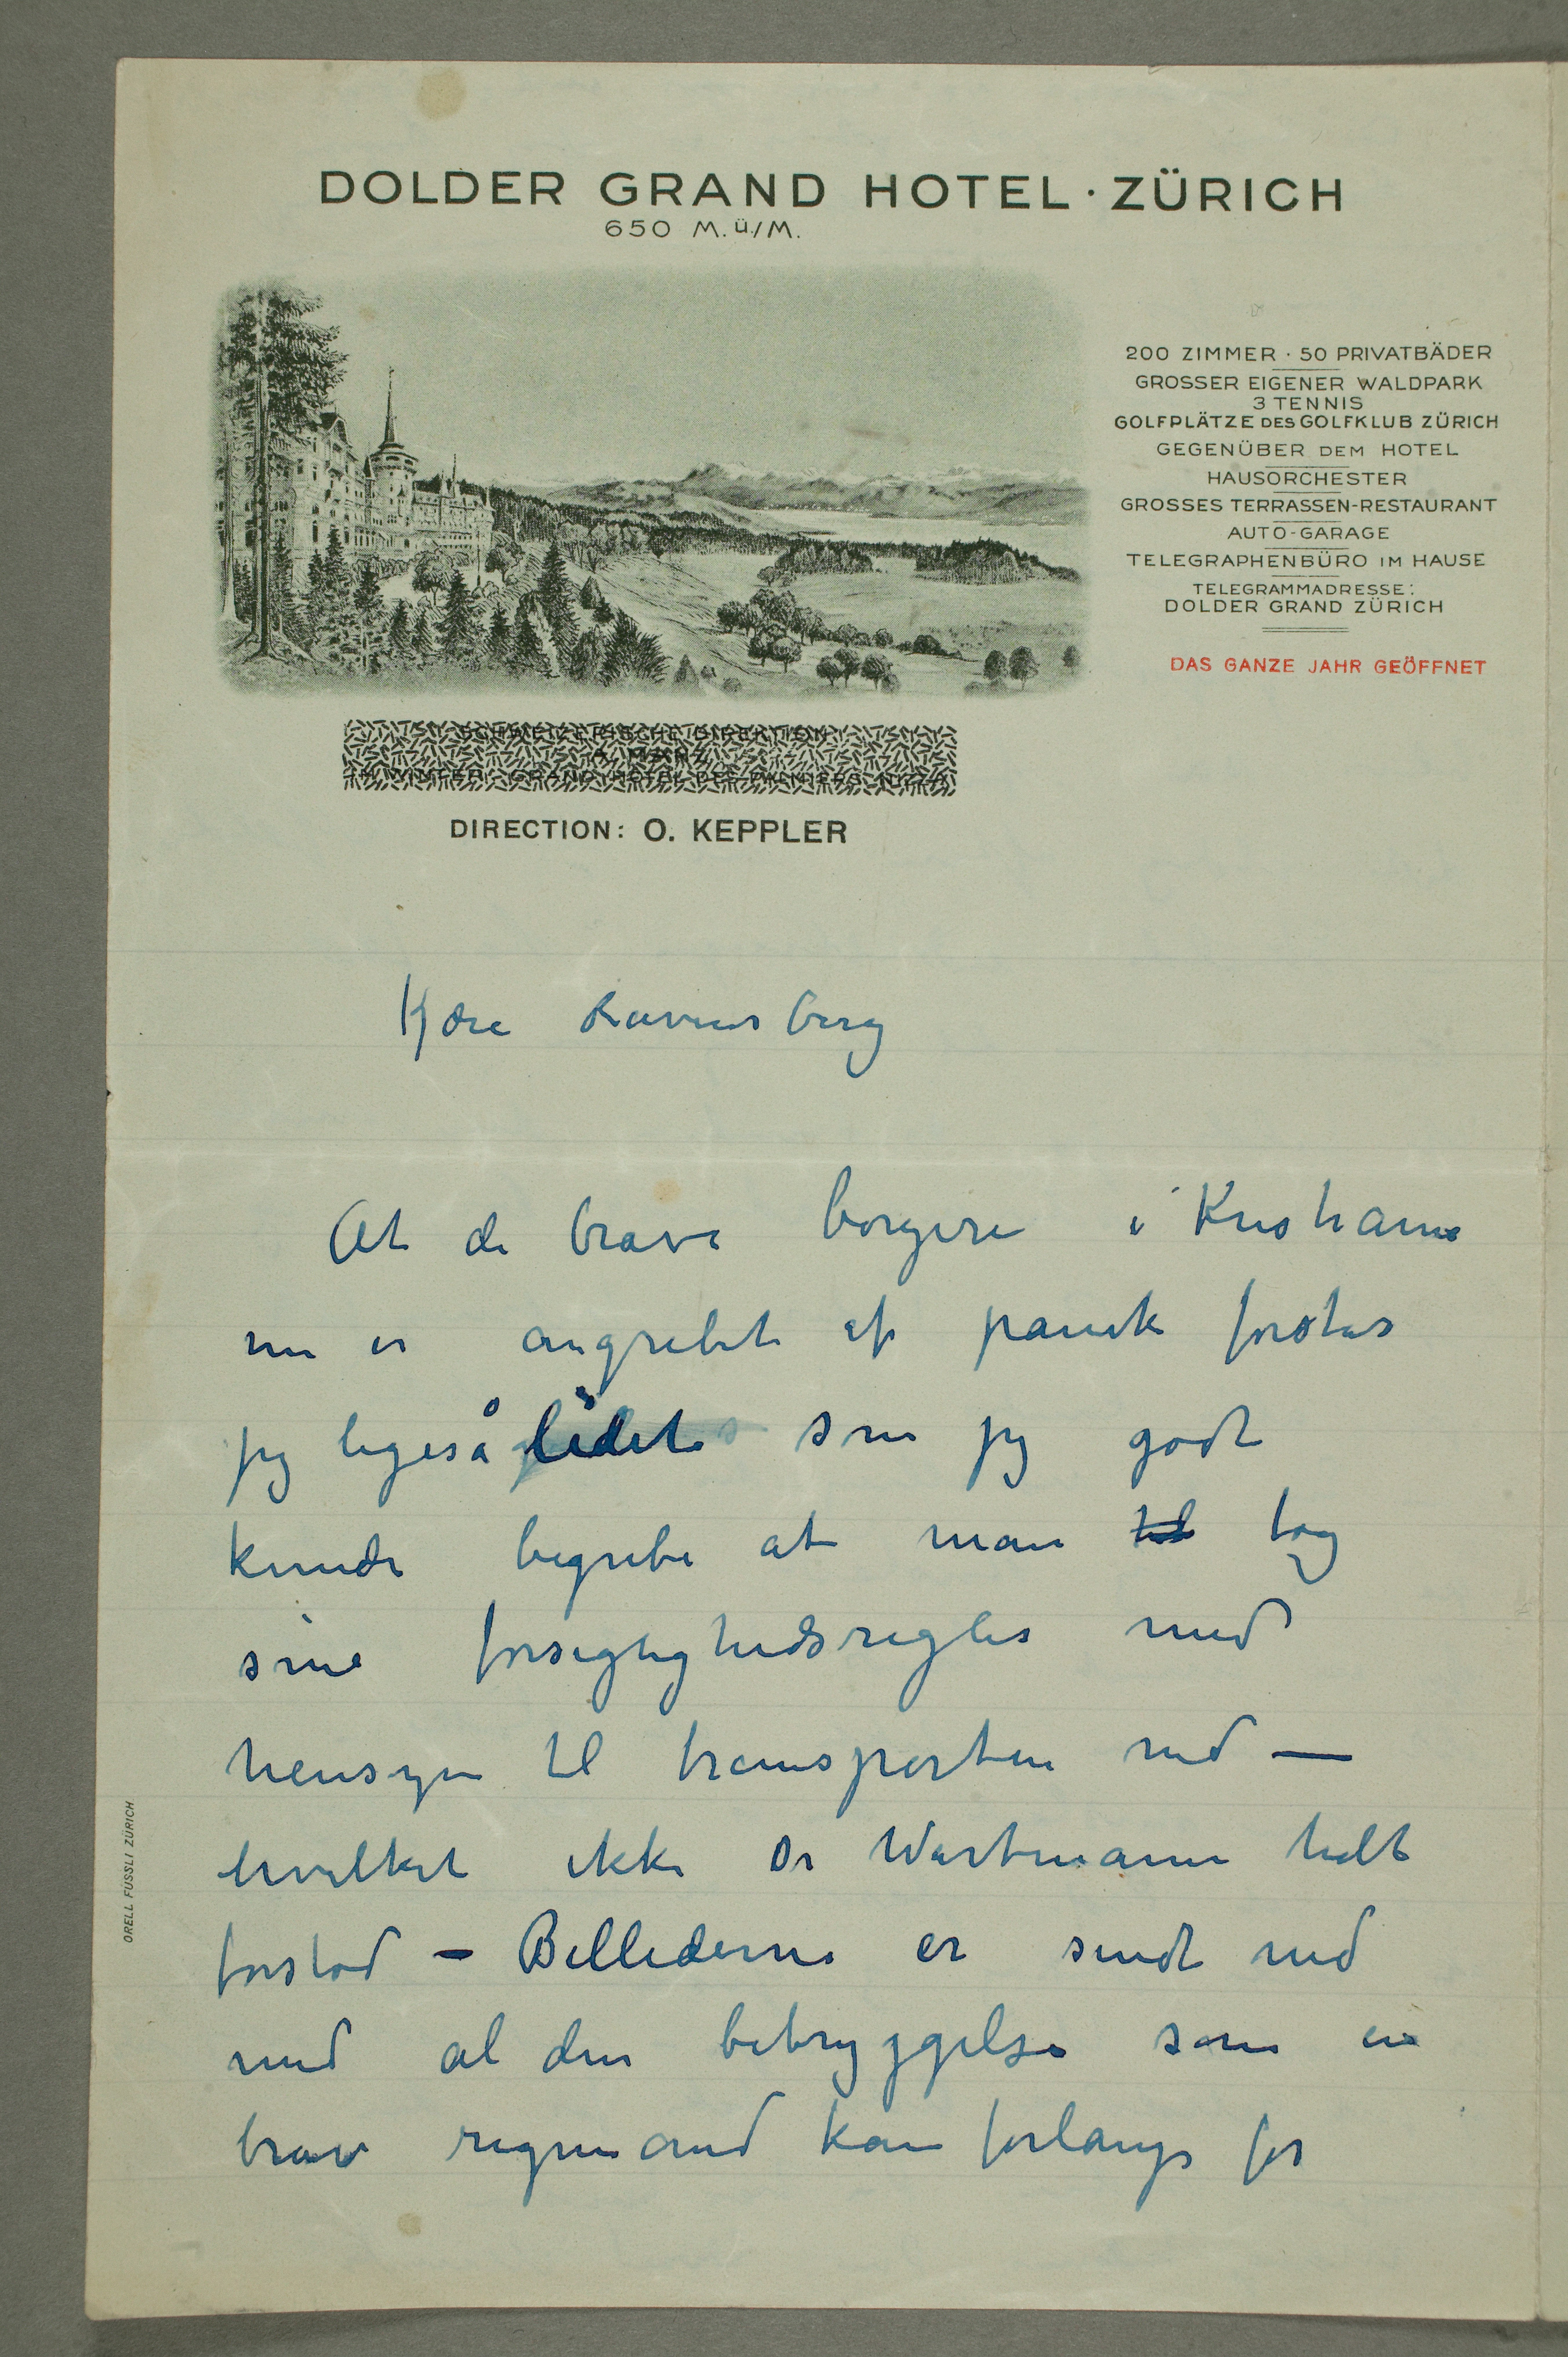 DOLDER GRAND HOTEL · ZÜRICH
650 M. ü./M.
200 ZIMMER · 50 PRIVATBÄDER
GROSSER EIGENER WALDPARK
3 TENNIS
GOLFPLÄTZE DES GOLFKLUB ZÜRICH
GEGENÜBER DEM HOTEL
HAUSORCHESTER
GROSSES TERRASSEN-RESTAURANT
AUTO-GARAGE
TELEGRAPHENBÜRO IM HAUSE
TELEGRAMMADRESSE:
DOLDER GRAND ZÜRICH
DAS GANZE JAHR GEÖFFNET
SCHWEIZERISCHE DIREKTION
IM WINTER: GRAND HOTEL DES PALMIERS NIZZA
DIRECTION: O. KEPPLER
Kjære Ravensberg
At de brave borgere i Kristiania
nu er angrebet af panik forstår
jeg ligeså lidet som jeg godt
kunde begribe at man til tog
sine forsigtighedsregler med
hensyn til transporten ned –
hvilket ikke Dr Wartmann helt
forstod – Billederne er sendt ned
med al den betryggelse som en
brav regnmand kan forlange for
ORELL FÜSSLI ZÜRICH